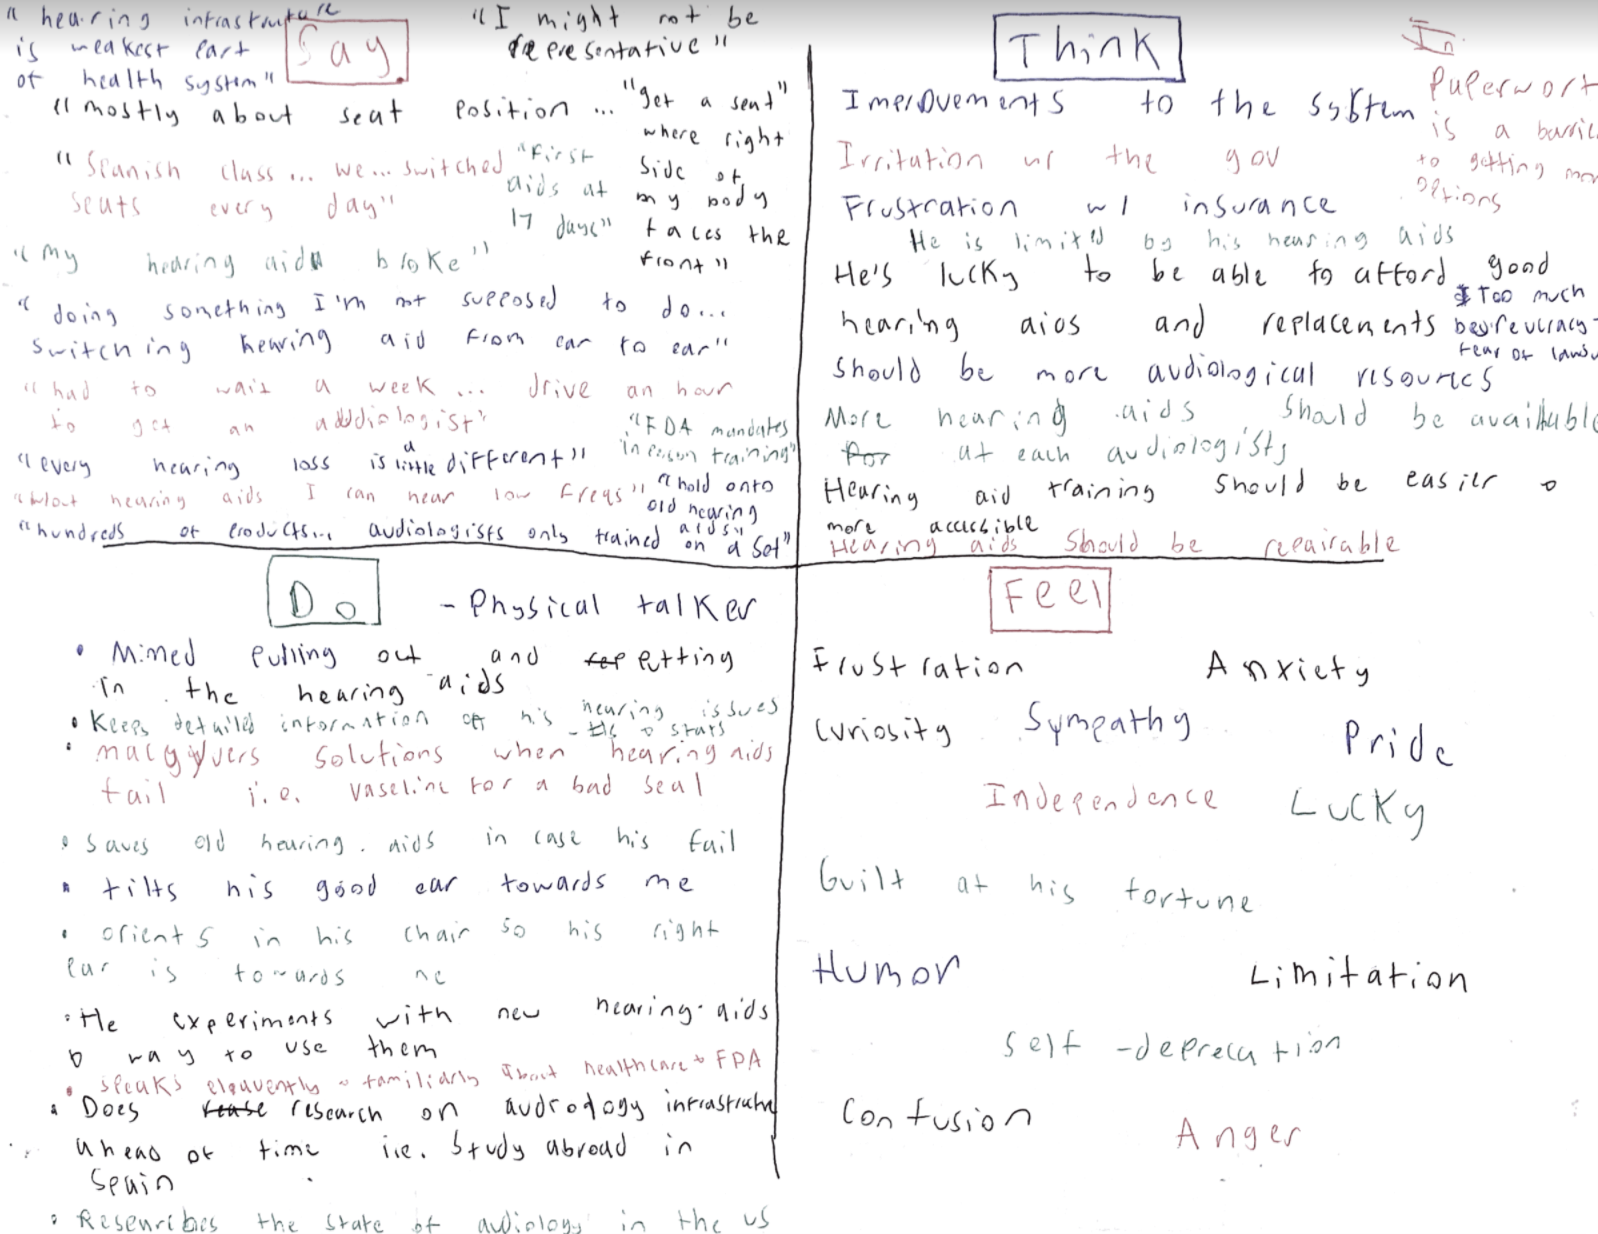 Say
"hearing infrastructure
is weakest part
of health system"
"I might not be
representative"
"mostly about seat position ...
"get a seat"
where right
side of
my body
faces the
front"
"Spanish class... we... switched
seats every day"
"First
aids at
17 days"
"my hearing aid broke"
"doing something I'm not supposed to do...
switching hearing aid from ear to ear"
"had to wait a week ... drive an hour
to get an audiologist"
"FDA mandates
in person training"
"every hearing loss is a little different"
"w/out hearing aids I can hear low freqs"
"hold onto
old hearing
aids"
"hundreds of products... audiologists only trained on a set"
Think
Improvements to the system
In
Paperwork
is a
to getting
options
Irritation w/ the gov
Frustration w/ insurance
He is limited by his hearing aids
He's lucky to be able to afford good
hearing aids and replacements
Too much
fear of
Should be more audiological resources
More hearing aids should be
at each audiologists
Hearing aid training should be easier &
more accessible
Hearing aids should be repairable
Do
- Physical talker
• Mimed pulling out and putting
in the hearing aids
• Keeps detailed information of his hearing issues
& stats
• macgyvers solutions when hearing aids
fail i.e. vaseline for a bad seal
• Saves old hearing aids in case his fail
• tilts his good ear towards me
• orients in his chair so his right
ear is towards me
• He experiments with new hearing aids
& way to use them
• speaks eloquently & familiarly about healthcare & FDA
• Does research on audiology
ahead of time i.e. study abroad in
Spain
• Researches the state of audiology in the US
Feel
Frustration
Anxiety
Curiosity
Sympathy
Pride
Independence
Lucky
Guilt at his fortune
Humor
Limitation
Self-deprecation
Confusion
Anger